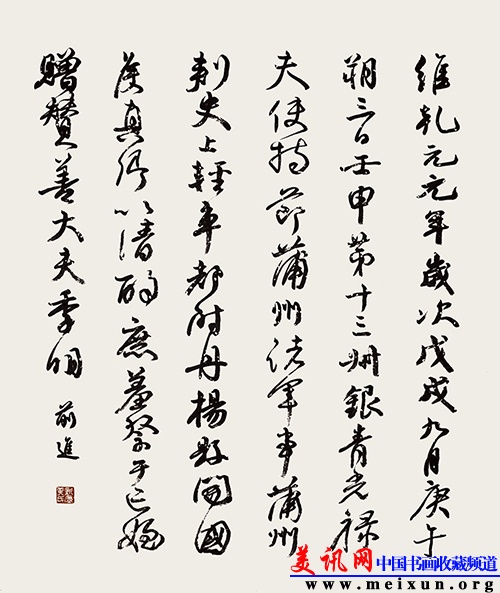 維乾元元年歲次戊戌九月庚午
朔三日壬申第十三叔銀青光祿
夫使持節蒲州諸軍事蒲州
刺史上輕車都尉丹楊縣開國
侯真卿以清酌庶羞祭于亡姪
贈贊善大夫季明
前進
美讯网 中国书画收藏频道
www.meixun.org